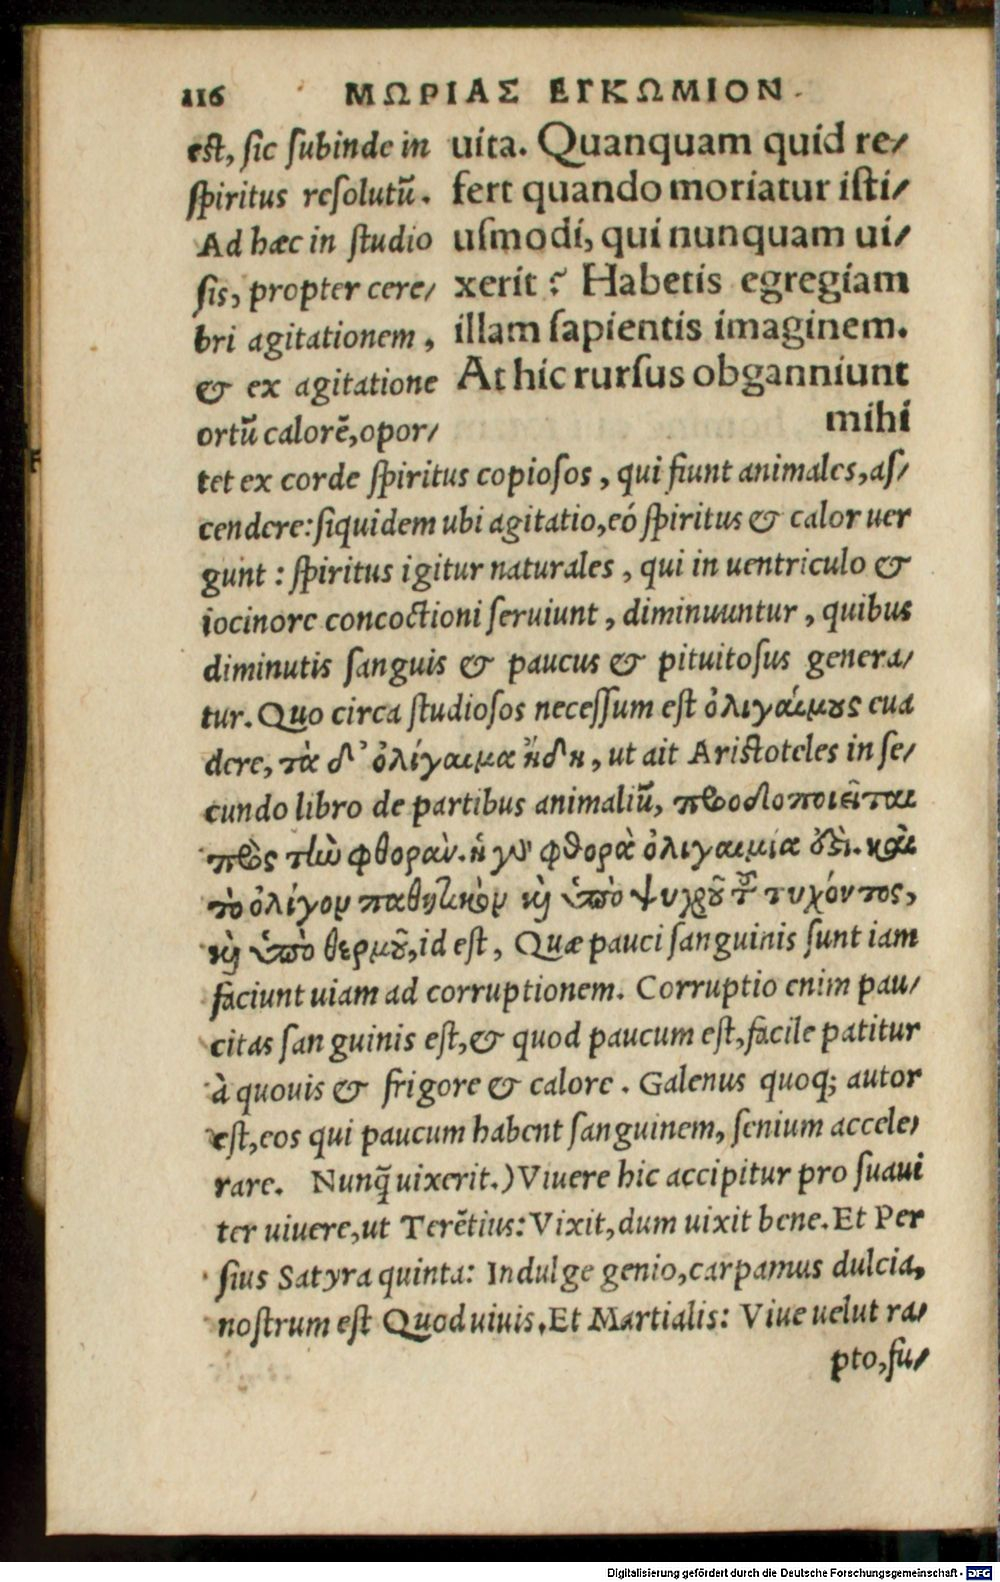 116 ΜΩΡΙΑΣ ΕΓΚΩΜΙΟΝ.
uita. Quanquam quid re/
fert quando moriatur isti/
usmodi, qui nunquam ui/
xerit? Habetis egregiam
illam sapientis imaginem.
At hic rursus obganniunt
mihi
est, sic subinde in
spiritus resolutū.
Ad hæc in studio
sis, propter cere/
bri agitationem,
& ex agitatione
ortū calorē, opor/
tet ex corde spiritus copiosos, qui fiunt animales, as/
cendere: siquidem ubi agitatio, eó spiritus & calor uer
gunt: spiritus igitur naturales, qui in uentriculo &
iocinore concoctioni seruiunt, diminuuntur, quibus
diminutis sanguis & paucus & pituitosus genera/
tur. Quo circa studiosos necessum est ὀλιγαίμους eua
dere, τὰ δ' ὀλίγαιμα ἤδη, ut ait Aristoteles in se/
cundo libro de partibus animaliū, προοδοποιεῖται
πρὸς τὴν φθοράν. ἡ γὰρ φθορὰ ὀλιγαιμία ὅδὶ. καὶ
τὸ ὀλίγον παθητικὸν καὶ ὑπὸ ψυχροῦ τοῦ τυχόντος,
καὶ ὑπὸ θερμοῦ, id est, Quæ pauci sanguinis sunt iam
faciunt uiam ad corruptionem. Corruptio enim pau/
citas sanguinis est, & quod paucum est, facile patitur
à quouis & frigore & calore. Galenus quoq; autor
est, eos qui paucum habent sanguinem, senium accele/
rare. Nunq̄ uixerit.) Viuere hic accipitur pro suaui
ter uiuere, ut Terētius: Vixit, dum uixit bene. Et Per
sius Satyra quinta: Indulge genio, carpamus dulcia,
nostrum est Quod uiuis. Et Martialis: Viue uelut ra/
pto, fu/
Digitalisierung gefördert durch die Deutsche Forschungsgemeinschaft - DFG